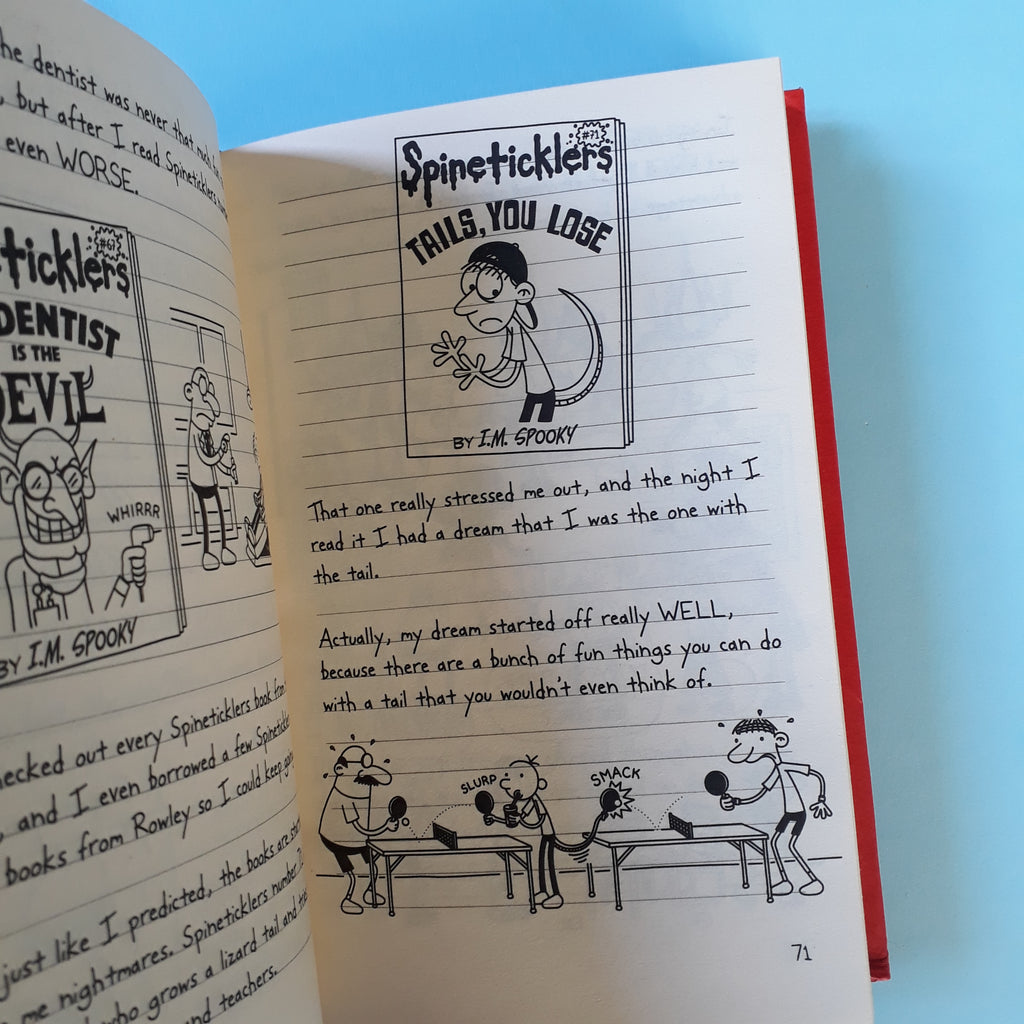 he dentist was never that much
, but after I read Spineticklers
even WORSE.
ticklers
#67
DENTIST
IS THE
DEVIL
WHIRRR
BY I.M. SPOOKY
hecked out every Spineticklers book from
, and I even borrowed a few
books from Rowley so I could keep
just like I predicted, the books are
me nightmares. Spineticklers number
who grows a lizard tail and
and teachers.
#71
Spineticklers
TAILS, YOU LOSE
BY I.M. SPOOKY
That one really stressed me out, and the night I
read it I had a dream that I was the one with
the tail.
Actually, my dream started off really WELL,
because there are a bunch of fun things you can do
with a tail that you wouldn't even think of.
SLURP
SMACK
71